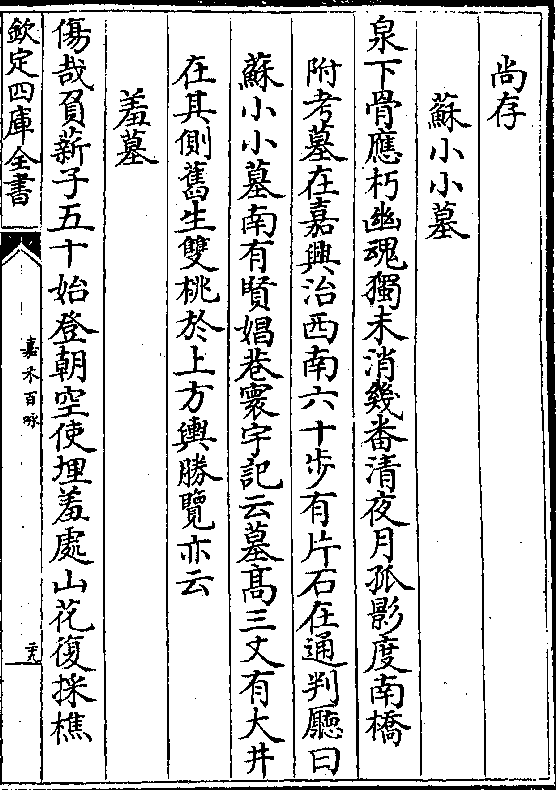 尚存
蘇小小墓
泉下骨應朽幽魂獨未消幾番清夜月孤影度南橋
附考墓在嘉興治西南六十步有片石在通判廳曰
蘇小小墓南有賢娼巷寰宇記云墓髙三丈有大井
在其側舊生雙桃於上方輿勝覽亦云
羞墓
傷哉負薪子五十始登朝空使埋羞處山花復採樵
欽定四庫全書
嘉禾百咏
二十九